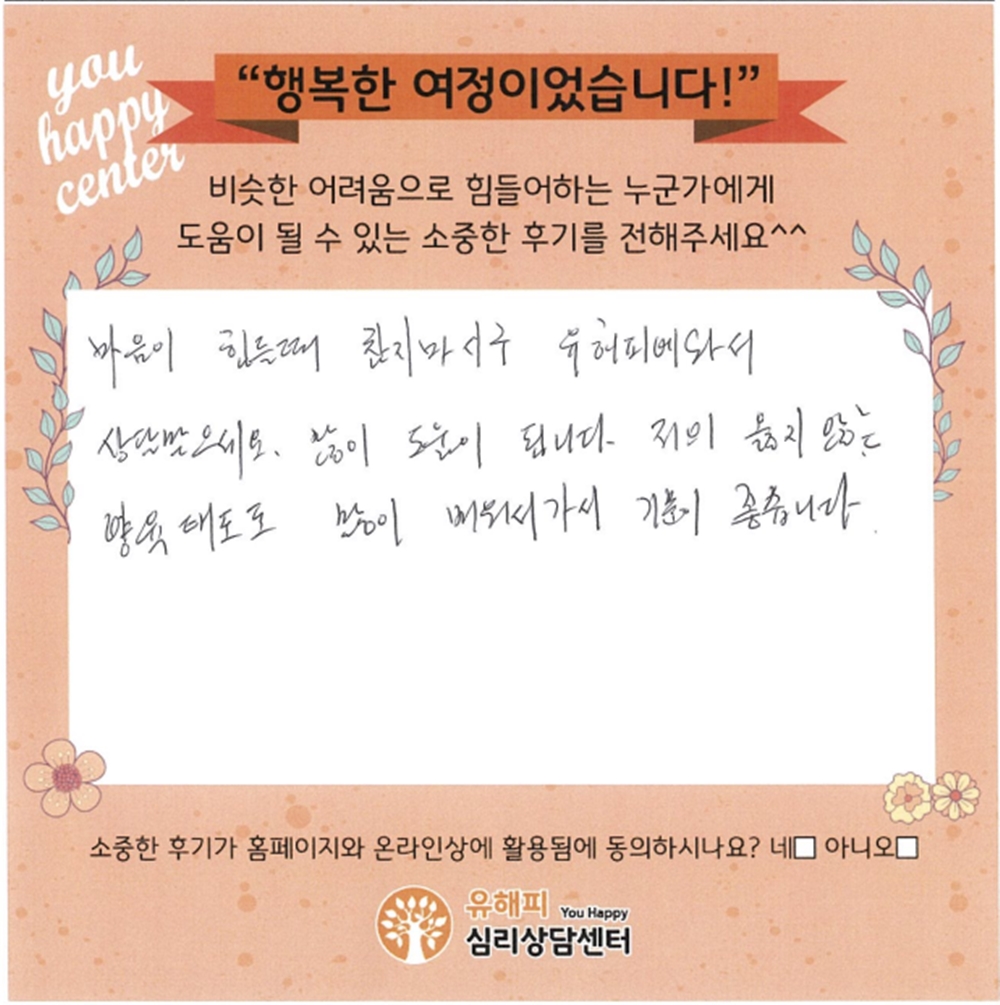 you
happy
center
“행복한 여정이었습니다!”
비슷한 어려움으로 힘들어하는 누군가에게
도움이 될 수 있는 소중한 후기를 전해주세요^^
마음이 힘들때 참지마시구 유해피에와서
상담받으세요. 많이 도움이 됩니다. 저의 옳지 않는
양육태도도 많이 배워서가서 기분이 좋습니다.
소중한 후기가 홈페이지와 온라인상에 활용됨에 동의하시나요? 네□ 아니오□
유해피 You Happy
심리상담센터